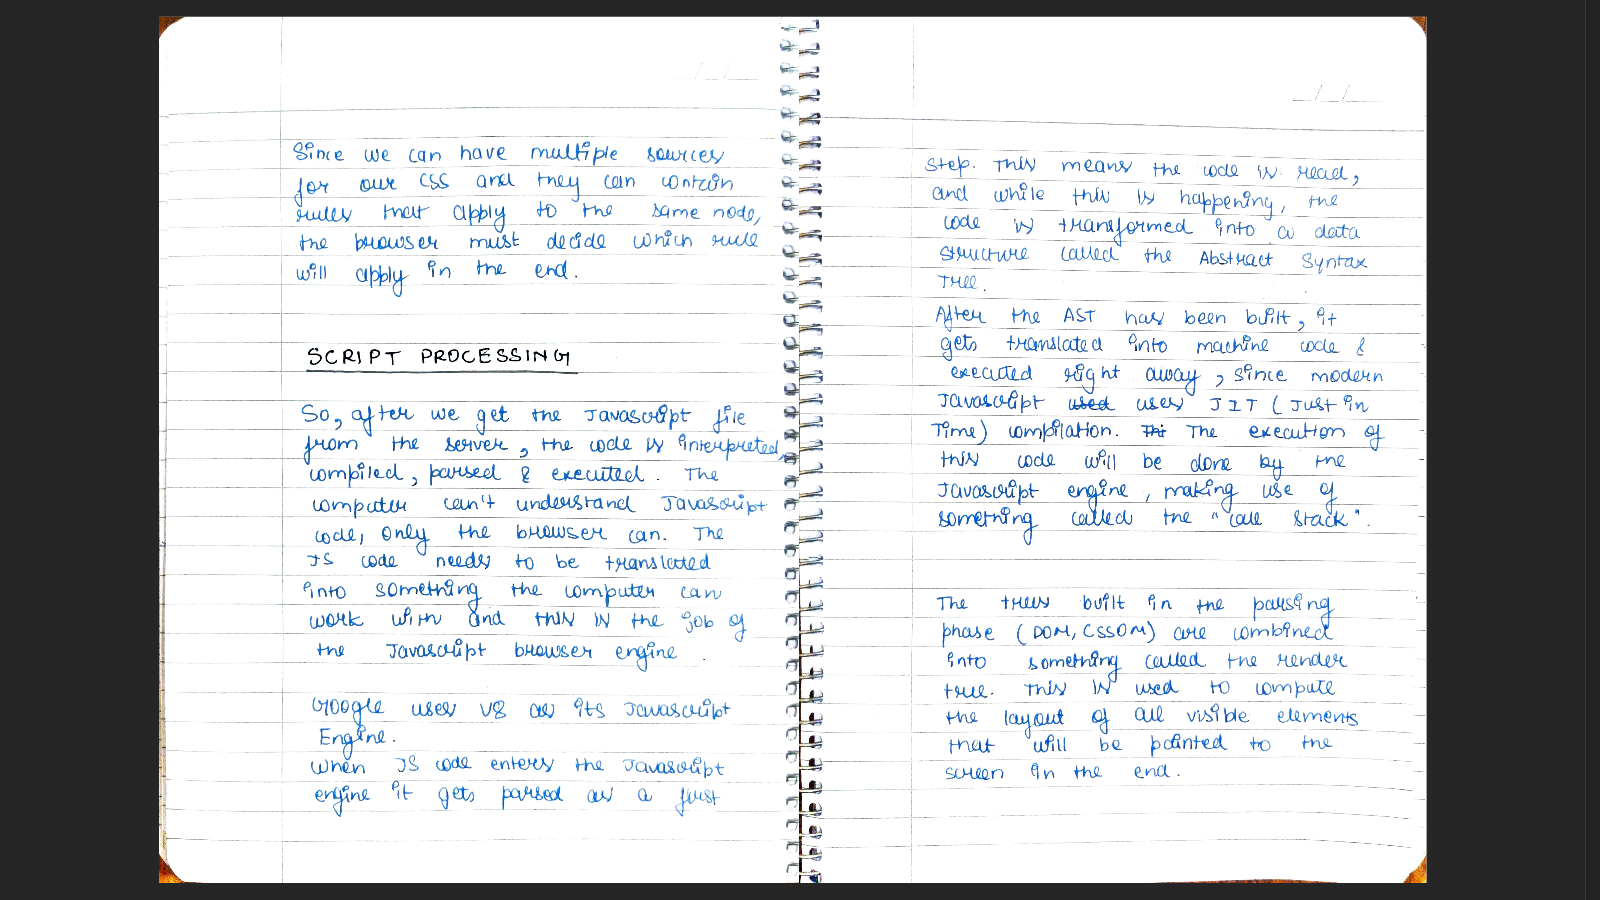 Since we can have multiple sources
for our CSS and they can contain
rules that apply to the same node,
the browser must decide which rule
will apply in the end.
SCRIPT PROCESSING
So, after we get the Javascript file
from the server, the code is interpreted,
compiled, parsed & executed. The
computer can't understand Javascript
code, only the browser can. The
JS code needs to be translated
into something the computer can
work with and this is the job of
the Javascript browser engine.
Google uses V8 as its Javascript
Engine.
When JS code enters the Javascript
engine it gets parsed as a first
Step. This means the code is read,
and while this is happening, the
code is transformed into a data
structure called the Abstract Syntax
Tree.
After the AST has been built, it
gets translated into machine code &
executed right away, since modern
Javascript used uses JIT (Just in
Time) compilation. Thi The execution of
this code will be done by the
Javascript engine, making use of
something called the "call stack".
The trees built in the parsing
phase (DOM, CSSOM) are combined
into something called the render
tree. This is used to compute
the layout of all visible elements
that will be painted to the
screen in the end.